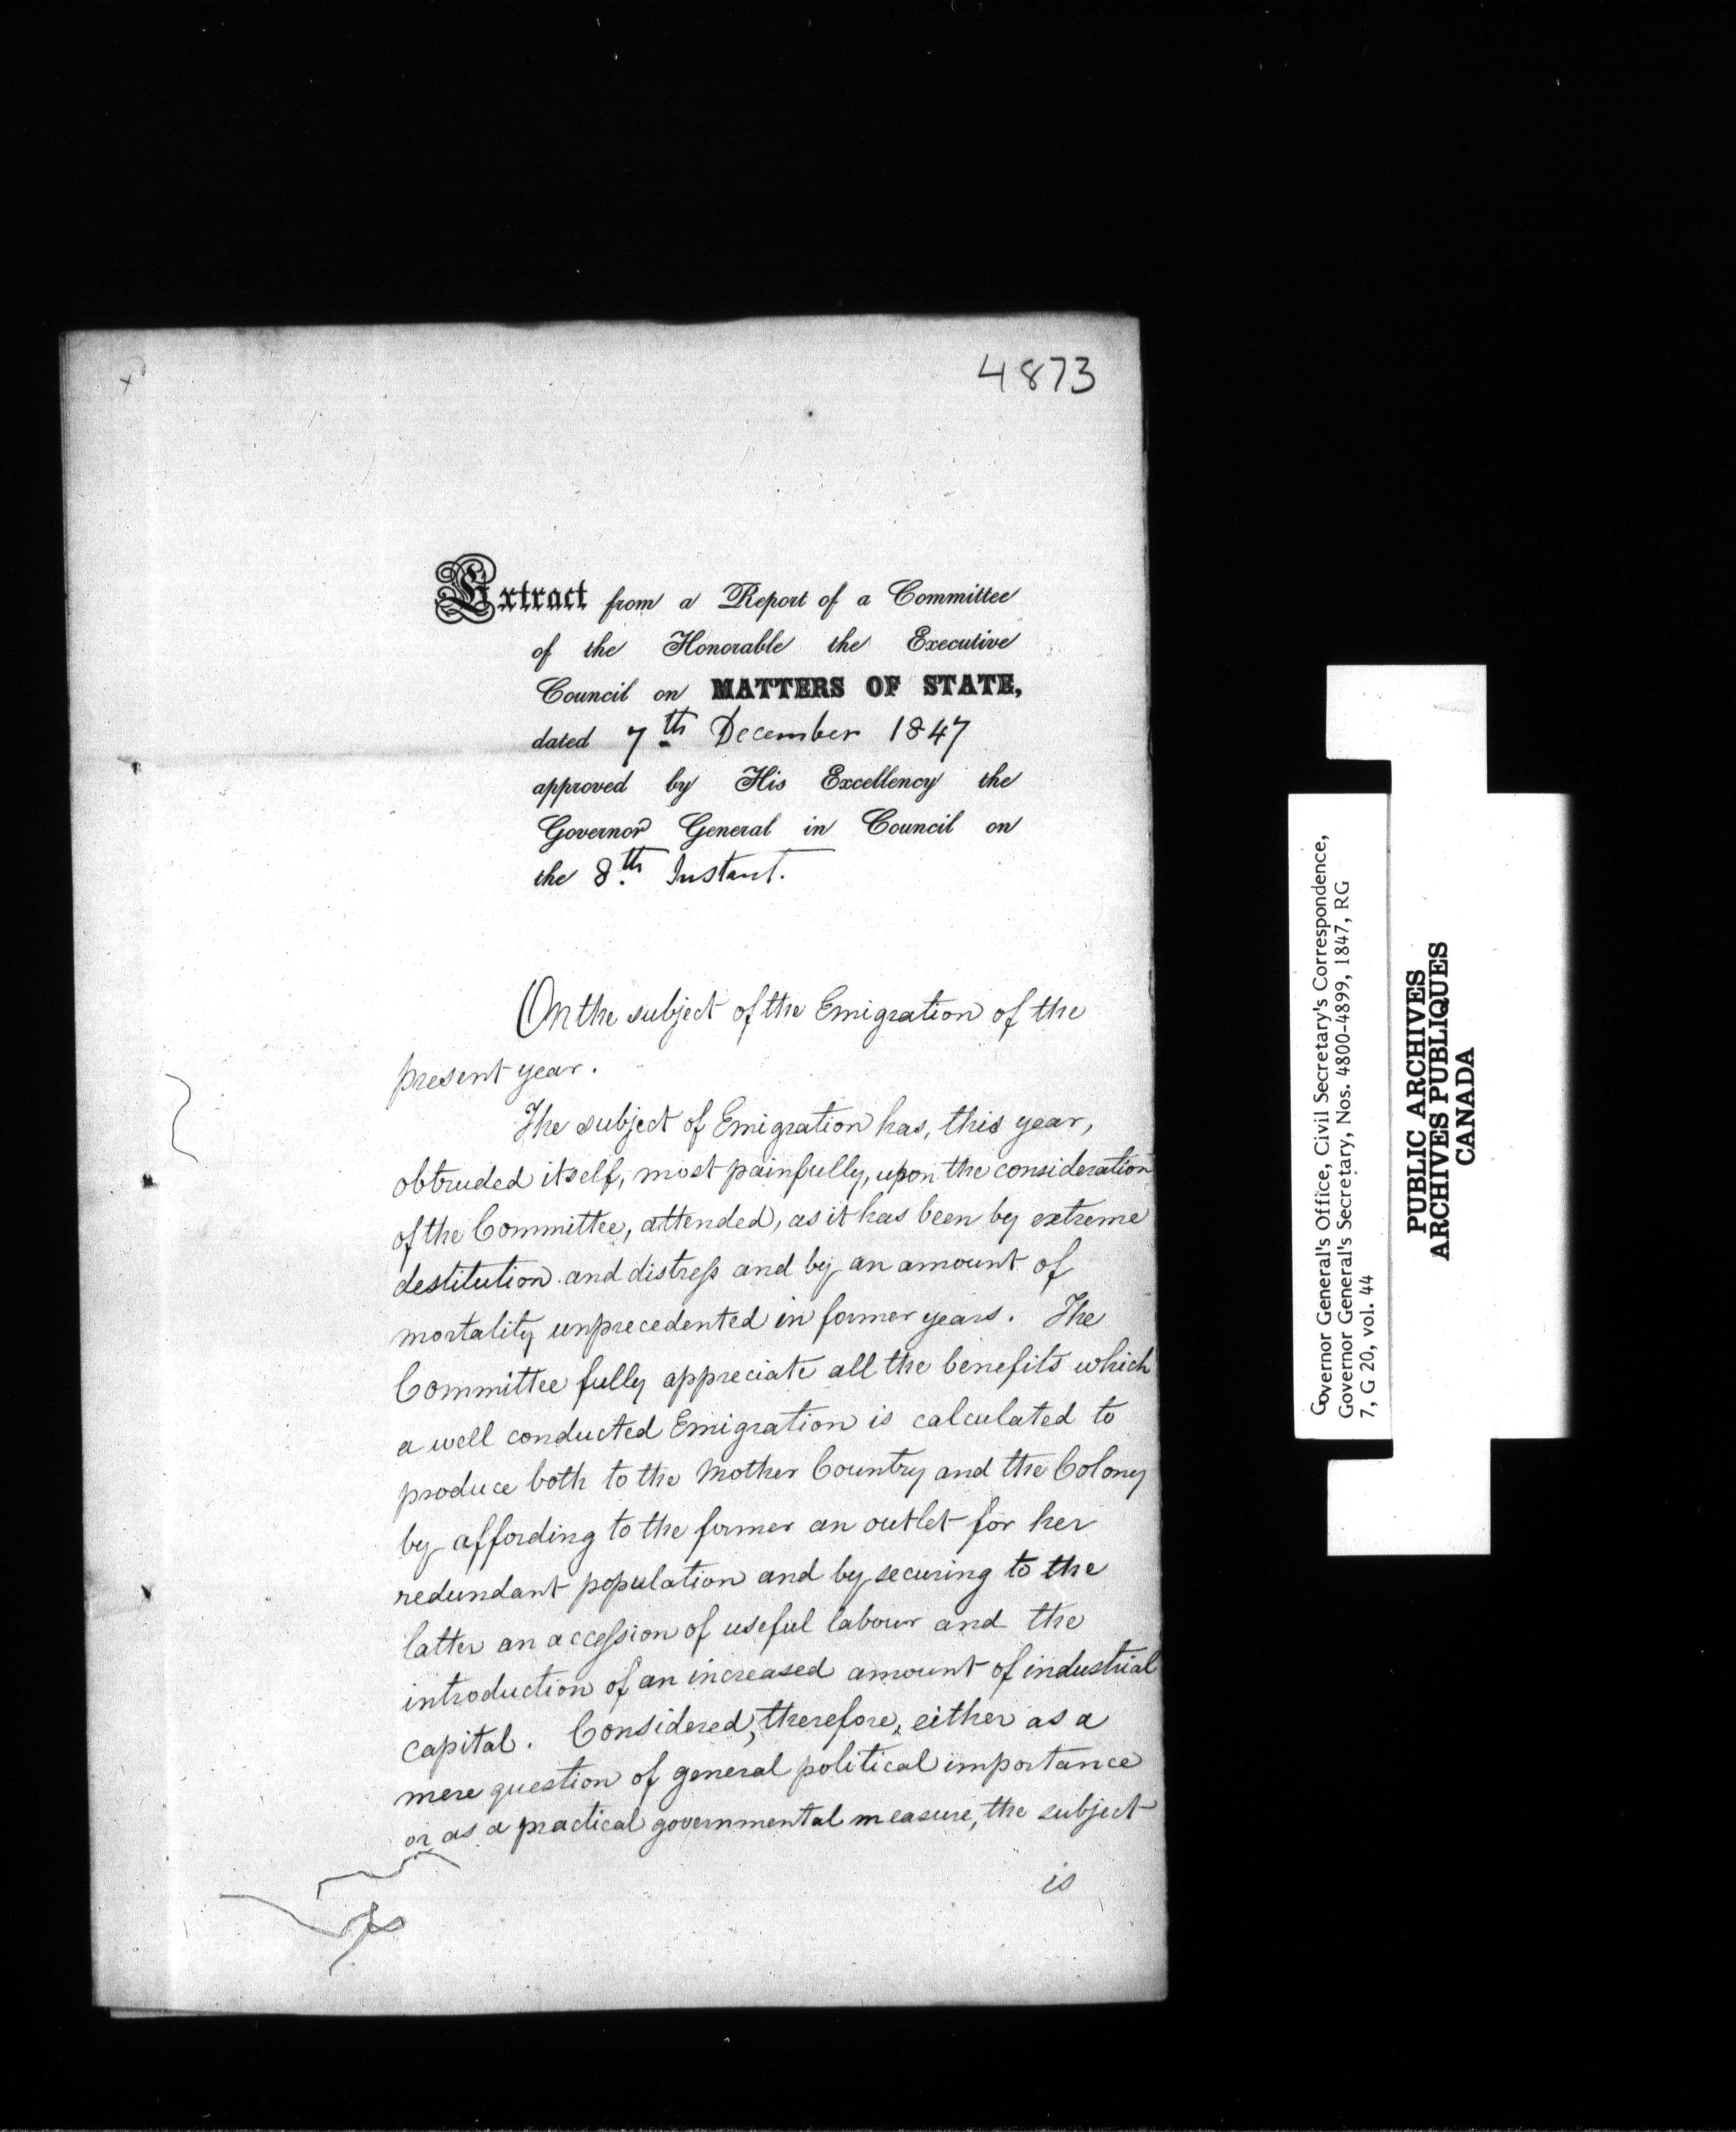 4873
Extract from a Report of a Committee
of the Honorable the Executive
Council on MATTERS OF STATE,
dated 7th December 1847
approved by His Excellency the
Governor General in Council on
the 8th Instant.
On the subject of the Emigration of the
present year.
The subject of Emigration has, this year,
obtruded itself, most painfully, upon the consideration
of the Committee, attended, as it has been by extreme
destitution and distress and by an amount of
mortality unprecedented in former years. The
Committee fully appreciate all the benefits which
a well conducted Emigration is calculated to
produce both to the Mother Country and the Colony
by affording to the former an outlet for her
redundant population and by securing to the
latter an accession of useful labour and the
introduction of an increased amount of industrial
capital. Considered, therefore, either as a
mere question of general political importance
or as a practical governmental measure, the subject
is
Governor General's Office, Civil Secretary's Correspondence,
Governor General's Secretary, Nos. 4800-4899, 1847, RG
7, G 20, vol. 44
PUBLIC ARCHIVES
ARCHIVES PUBLIQUES
CANADA